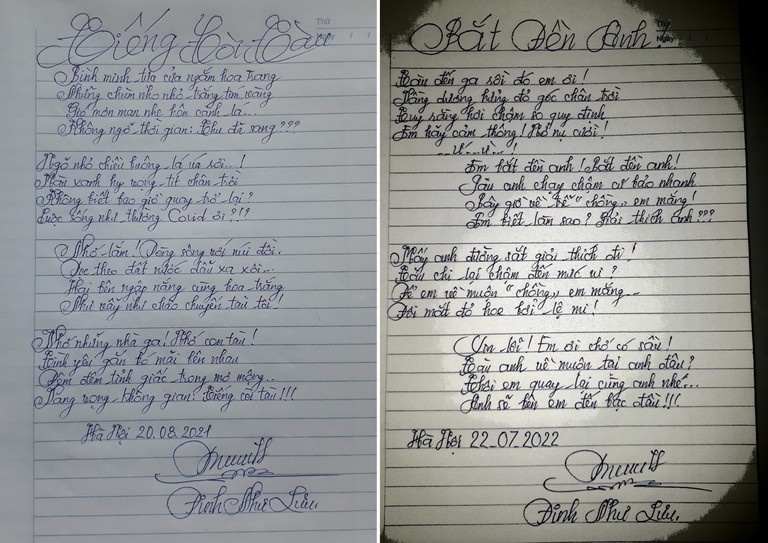 Tiếng Còi Tàu
Bình minh tựa cửa ngắm hoa trang
Những chùm nho nhỏ trắng tim vàng
Gió mơn man nhẹ hôn cành lá...
Không ngờ thời gian: Thu đã sang???
Ngõ nhỏ chiều buông lá úa rơi...!
Màu xanh hy vọng tít chân trời
Không biết bao giờ quay trở lại?
Cuộc sống như thường Covid ơi?!?
Nhớ lắm! Dòng sông với núi đồi.
Dọc theo đất nước dẫu xa xôi...
Hai bên ngập nắng cùng hoa trắng
Như vẫy như chào chuyến tàu tôi!
Nhớ những nhà ga! Nhớ con tàu!
Tình yêu gắn bó mãi bên nhau
Đêm đêm tỉnh giấc trong mơ mộng..
Vang vọng không gian: Tiếng còi tàu!!!
Hà Nội 20.08.2021
Đinh Như Lưu.
Thứ
Bắt Đền Anh!
Thứ
Ngày
Tàu đến ga rồi đó em ơi!
Vầng dương hửng đỏ góc chân trời
Tuy rằng hơi chậm so quy định
Em hãy cảm thông! Nở nụ cười!
Em bắt đền anh! Bắt đền anh!
Tàu anh chạy chậm cứ bảo nhanh
Bây giờ về trễ "chồng" em mắng!
Em biết làm sao? Giải thích anh???
Mấy anh đường sắt giải thích đi!
Tàu chi lại chậm đến mức ni?
Để em về muộn "chồng" em mắng...
Đôi mắt đỏ hoe bởi lệ mi!
Ừm.. lỗi! Em ơi chớ có sầu!
Tàu anh về muộn tại anh đâu?
Thôi em quay lại cùng anh nhé...
Anh sẽ bên em đến bạc đầu!!!
Hà Nội 22_07.2022
Đinh Như Lưu.